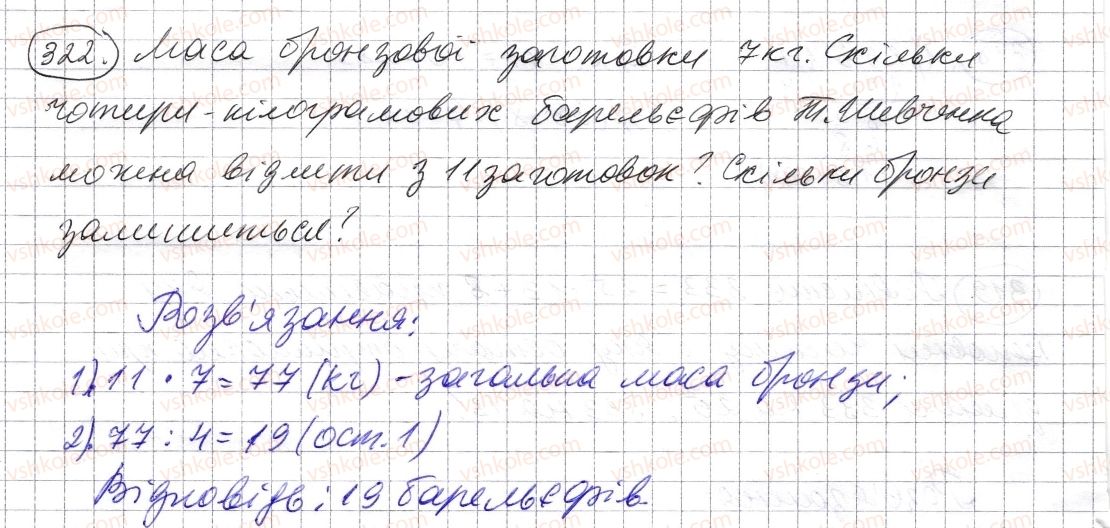 322. Маса бронзової заготовки 7кг. Скільки
чотири-кілограмових барельєфів Т. Шевченка
можна відлити з 11 заготовок? Скільки бронзи
залишиться?
Розв'язання:
1). 11 · 7 = 77 (кг) - загальна маса бронзи;
2). 77 : 4 = 19 (ост. 1)
Відповідь: 19 барельєфів